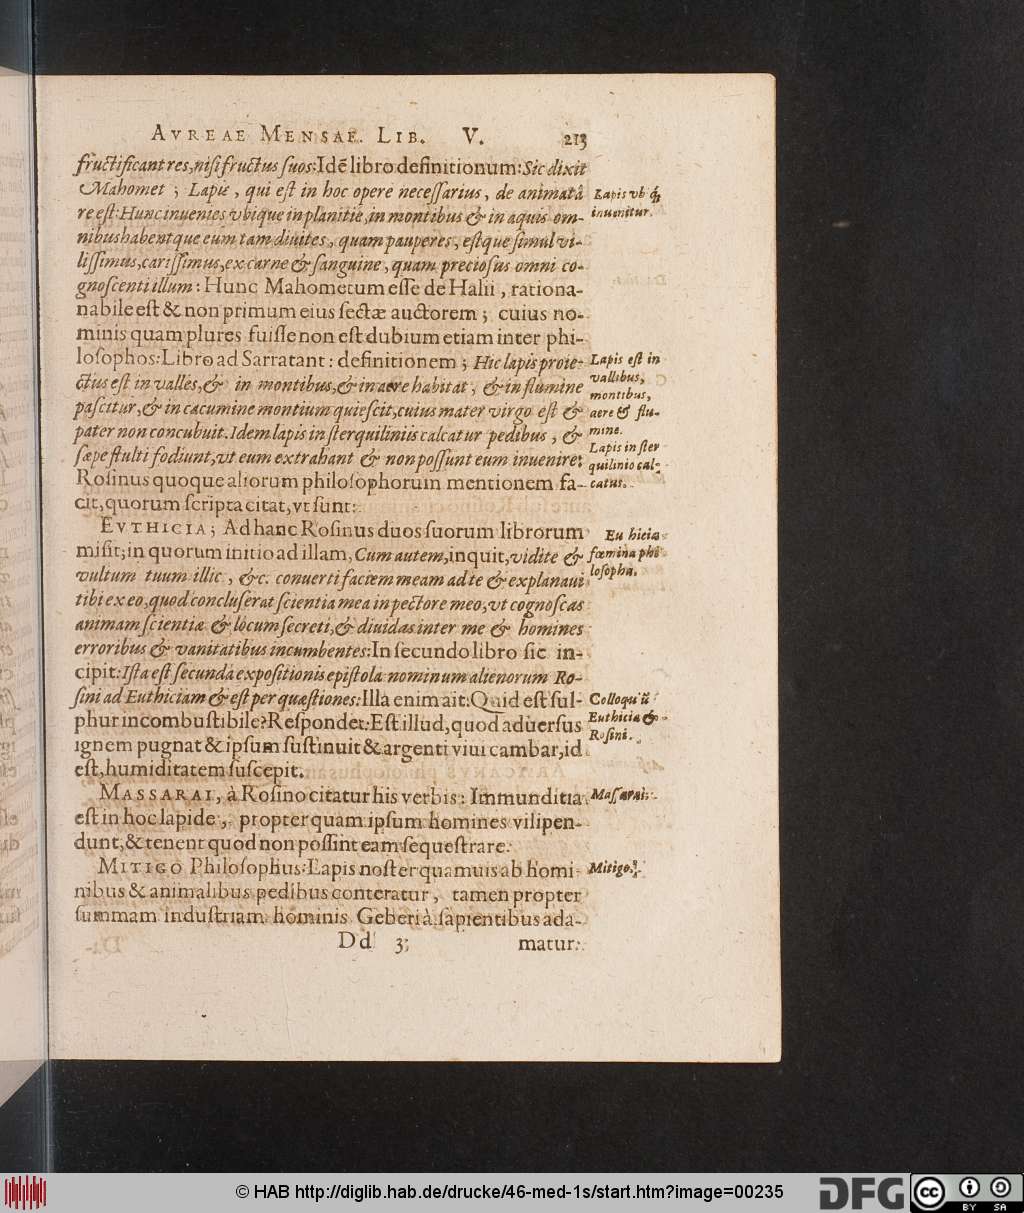 AVREAE MENSAE. LIB. V. 213
fructificant res, nisi fructus suos: Idẽ libro definitionum: Sic dixit
Mahomet ; Lapis, qui est in hoc opere necessarius, de animatâ
re est: Hunc inuenies vbique in planitie, in montibus & in aquis om-
nibus habentque eum tam diuites, quam pauperes, estque simul vi-
lissimus, carissimus, ex carne & sanguine, quam preciosus omni co-
gnoscenti illum: Hunc Mahometum esse de Halii, rationa-
nabile est & non primum eius sectæ auctorem; cuius no-
minis quam plures fuisse non est dubium etiam inter phi-
losophos: Libro ad Sarratant: definitionem; Hic lapis proie-
ctus est in valles, & in montibus, & in aere habitat, & in flumine
pascitur, & in cacumine montium quiescit, cuius mater virgo est &
pater non concubuit. Idem lapis in sterquiliniis calcatur pedibus, &
sæpe stulti fodiunt, vt eum extrahant & non possunt eum inuenire:
Rosinus quoque aliorum philosophorum mentionem fa-
cit, quorum scripta citat, vt sunt:
EVTHICIA; Ad hanc Rosinus duos suorum librorum
misit; in quorum initio ad illam, Cum autem, inquit, vidite &
vultum tuum illic, &c. conuerti faciem meam ad te & explanaui
tibi ex eo, quod concluserat scientia mea in pectore meo, vt cognoscas
animam scientiæ & locum secreti, & diuidas inter me & homines
erroribus & vanitatibus incumbentes: In secundo libro sic in-
cipit: Ista est secunda expositionis epistola nominum alienorum Ro-
sini ad Euthiciam & est per quæstiones: Illa enim ait: Quid est sul-
phur incombustibile? Respondet: Est illud, quod aduersus
ignem pugnat & ipsum sustinuit & argenti viui cambar, id
est, humiditatem suscepit.
MASSARAI, à Rosino citatur his verbis: Immunditia
est in hoc lapide, propter quam ipsum homines vilipen-
dunt, & tenent quod non possint eam sequestrare.
MITIGO Philosophus: Lapis noster quamuis ab homi-
nibus & animalibus pedibus conteratur, tamen propter
summam industriam hominis Geberi à sapientibus ada-
Dd 3 matur.
Lapis vbiq́;
inuenitur.
Lapis est in
vallibus,
montibus,
aere & flu-
mine.
Lapis in ster
quilinio cal-
catus.
Eu hicia
fœmina phi
losopha.
Colloquiũ
Euthiciæ &
Rosini.
Massarai.
Mitigo.
© HAB http://diglib.hab.de/drucke/46-med-1s/start.htm?image=00235
DFG
cc BY SA